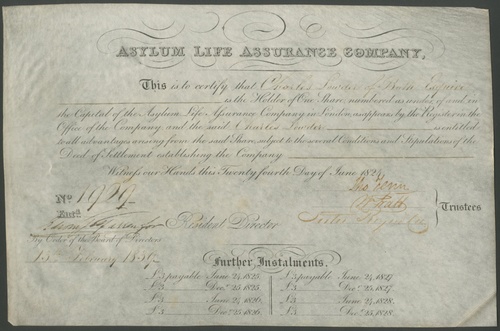 ASYLUM LIFE ASSURANCE COMPANY,
This is to certify that Charles Lowder of Bath Esquire
is the Holder of One Share, numbered as under, of and in
the Capital of the Asylum Life Assurance Company in London, as appears by the Register in the
Office of the Company, and the said Charles Lowder is entitled
to all advantages arising from the said Share, subject to the several Conditions and Stipulations of the
Deed of Settlement establishing the Company
Witness our Hands this Twenty fourth Day of June 1824
No 1929
Trustees
Entd.
Resident Director
By Order of the Board of Directors
February
Further, Instalments.
£3 payable June 24, 1825. £3 payable June 24, 1827.
£3 Decr. 25, 1825. £3 Decr. 25, 1827.
£3 June 24, 1826. £3 June 24, 1828.
£3 Decr. 25, 1826. £3 Decr. 25, 1828.